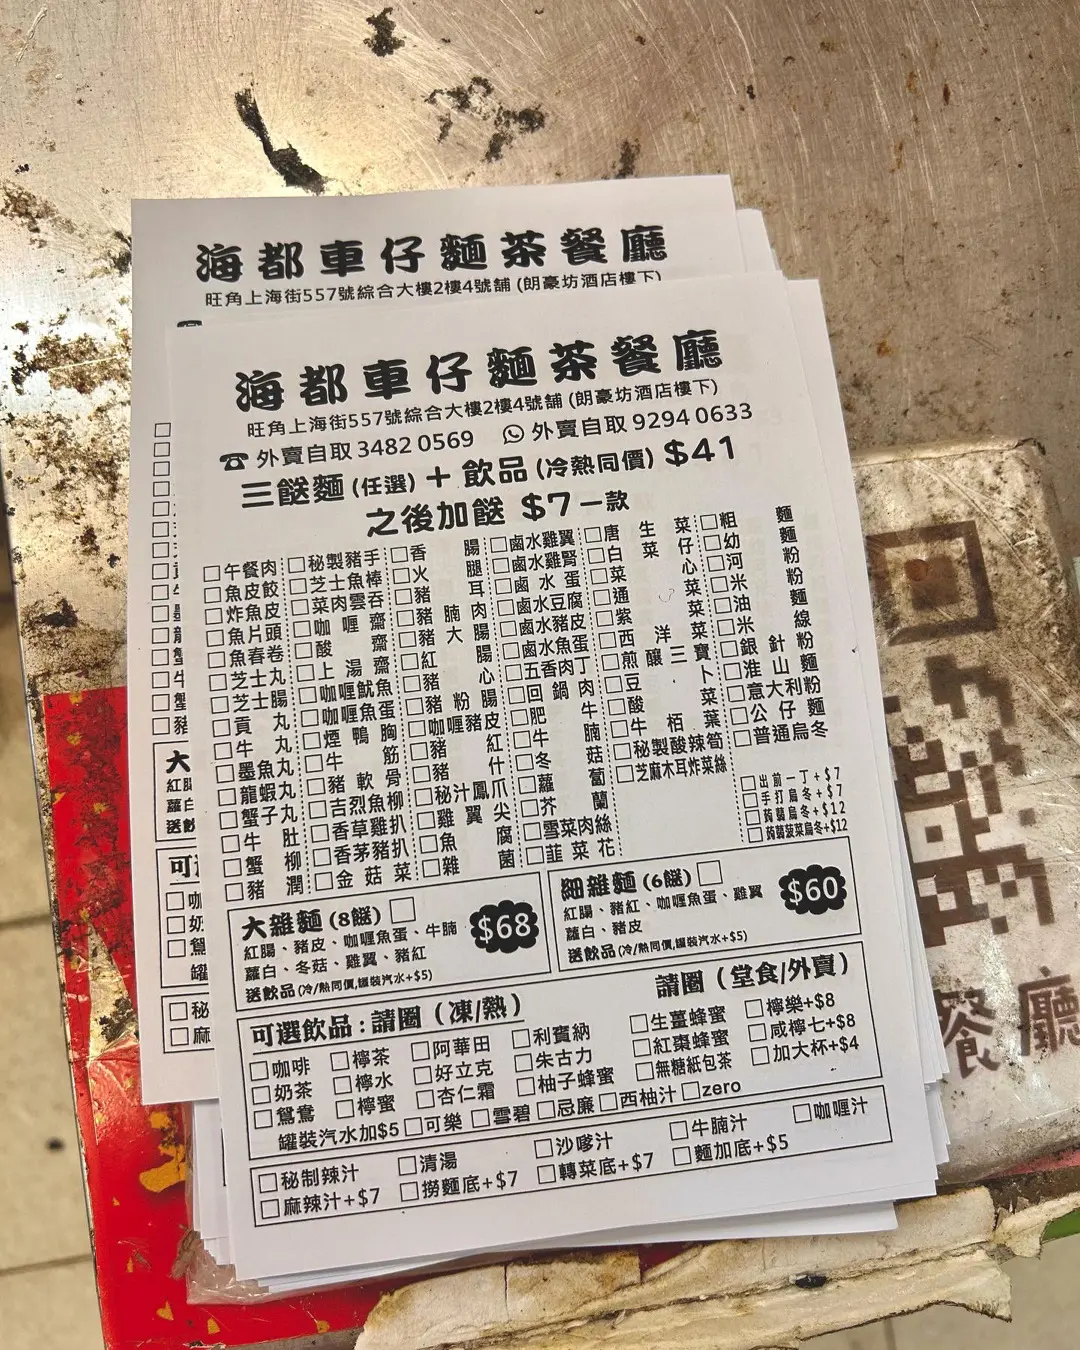 海都車仔麵茶餐廳
旺角上海街557號綜合大樓2樓4號舖 (朗豪坊酒店樓下)
海都車仔麵茶餐廳
旺角上海街557號綜合大樓2樓4號舖 (朗豪坊酒店樓下)
☎ 外賣自取 3482 0569 外賣自取 9294 0633
三餸麵 (任選) + 飲品 (冷熱同價) $41
之後加餸 $7一款
□午餐肉
□魚皮餃
□炸魚皮
□魚片頭
□魚春卷
□芝士丸
□芝士腸
□貢丸
□牛丸
□墨魚丸
□龍蝦丸
□蟹子丸
□牛肚
□蟹柳
□豬潤
□秘製豬手
□芝士魚棒
□菜肉雲吞
□咖喱齋
□酸齋
□上湯齋
□咖喱魷魚
□咖喱魚蛋
□煙鴨胸
□牛筋
□豬軟骨
□吉烈魚柳
□香草雞扒
□香茅豬扒
□金菇菜
□香腸
□火腿
□豬耳
□豬腩肉
□豬大腸
□紅腸
□豬心
□豬粉腸
□咖喱豬皮
□豬紅
□豬什
□秘汁鳳爪
□雞翼尖
□魚腐
□雜菌
□鹵水雞翼
□鹵水雞腎
□鹵水蛋
□鹵水豆腐
□鹵水豬皮
□鹵水魚蛋
□五香肉丁
□回鍋肉
□肥牛
□牛腩
□冬菇
□蘿蔔
□芥蘭
□雪菜肉絲
□韮菜花
□唐生菜
□白菜仔
□菜心
□通菜
□紫菜
□西洋菜
□煎釀三寶
□豆卜
□酸菜
□牛栢葉
□秘製酸辣筍
□芝麻木耳炸菜絲
□粗麵
□幼麵
□河粉
□米粉
□油麵
□米線
□銀針粉
□淮山麵
□意大利粉
□公仔麵
□普通烏冬
□出前一丁+$7
□手打烏冬+$7
□蒟蒻烏冬+$12
□蒟蒻菠菜烏冬+$12
大雜麵 (8餸) □ $68
紅腸、豬皮、咖喱魚蛋、牛腩
蘿白、冬菇、雞翼、豬紅
送飲品 (冷/熱同價,罐裝汽水+$5)
細雜麵 (6餸) □ $60
紅腸、豬紅、咖喱魚蛋、雞翼
蘿白、豬皮
送飲品 (冷/熱同價,罐裝汽水+$5)
可選飲品 : 請圈 (凍/熱) 請圈 (堂食/外賣)
□咖啡 □檸茶 □阿華田 □利賓納 □生薑蜂蜜 □檸樂+$8
□奶茶 □檸水 □好立克 □朱古力 □紅棗蜂蜜 □咸檸七+$8
□鴛鴦 □檸蜜 □杏仁霜 □柚子蜂蜜 □無糖紙包茶 □加大杯+$4
罐裝汽水加$5 □可樂 □雪碧 □忌廉 □西柚汁 □zero
□秘制辣汁 □清湯 □沙嗲汁 □牛腩汁 □咖喱汁
□麻辣汁+$7 □撈麵底+$7 □轉菜底+$7 □麵加底+$5
餐廳